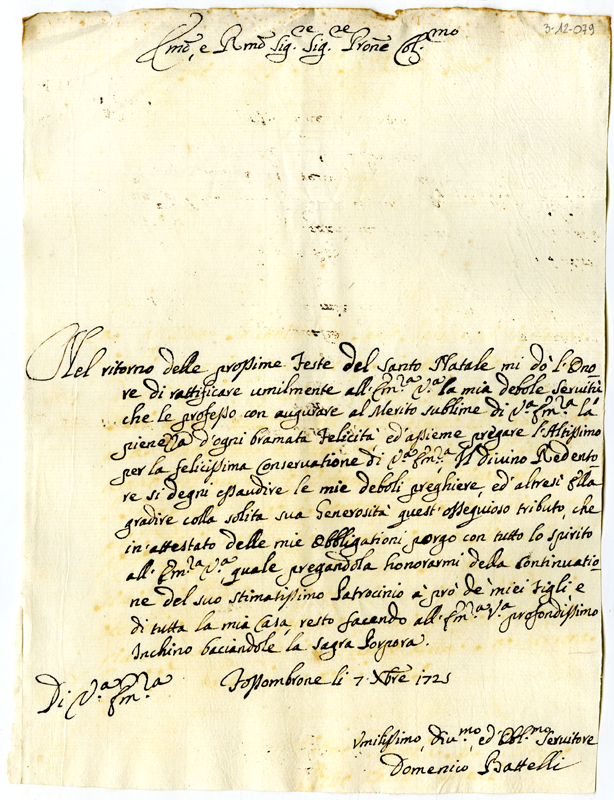 3-12-079
Emõ, e Rmõ Sig.re Sig.re Prone Col.mo
Nel ritorno delle prossime Feste del Santo Natale mi dò l'Ono
re di rattificare umilmente all'Em.za V.a la mia debole servitù
che le professo con augurare al Merito sublime di V.a Em.za la
pienezza d'ogni bramata Felicità ed'assieme pregare l'Altissimo
per la felicissima Conservatione di V.a Em.za. Il Divino Redento
re si degni essaudire le mie deboli preghiere, ed'altresì Ella
gradire colla solita sua Generosità quest'ossequioso tributo, che
in'attestato delle mie Obbligationi porgo con tutto lo spirito
all'Em.za V.a, quale pregandola honorarmi della Continuatio=
ne del suo stimatissimo Patrocinio à prò de' miei Figli, e
di tutta la mia Casa, resto facendo all'Em.za V.a profondissimo
Inchino baciandole la sagra Porpora.
Di V.a Em.za Fossombrone li 7 Xbre 1725
Umilissimo, Div.mo, ed'Obl.mo Servitore
Domenico Battelli